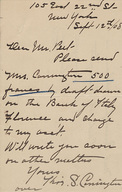 105 East 22nd St
New York
Sept 12th 05
Dear Mr. Bert.
Please send
Mrs. Carrington 500
francs by draft drawn
on the Bank of Italy
Florence and charge to
my acct.
Will write you soon
on other matters
Yours
over Thos. S Carrington